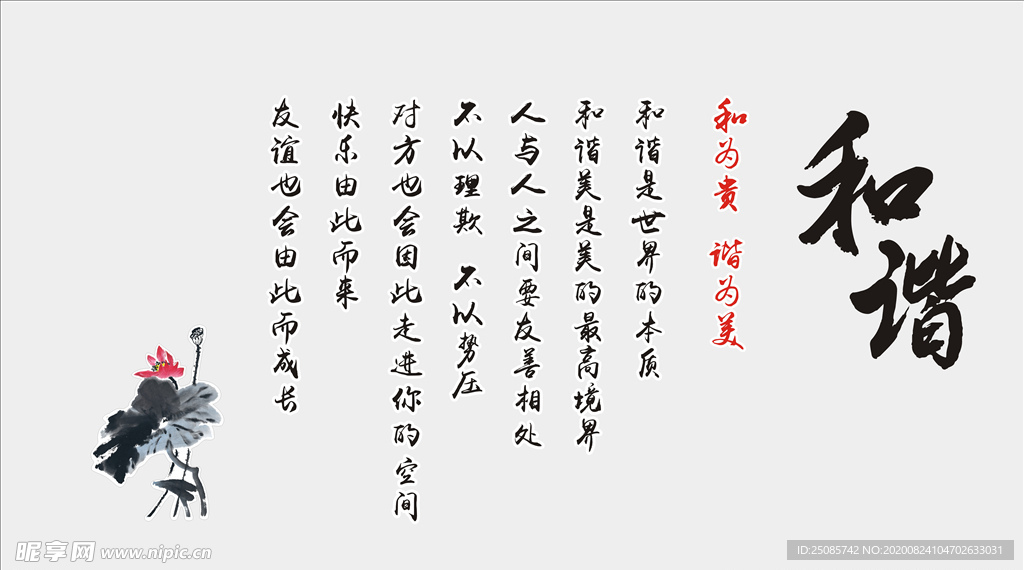 和谐
和为贵 谐为美
和谐是世界的本质
和谐美是美的最高境界
人与人之间要友善相处
不以理欺 不以势压
对方也会因此走进你的空间
快乐由此而来
友谊也会由此而成长
昵享网 www.nipic.cn
ID:25085742 NO:20200824104702633031